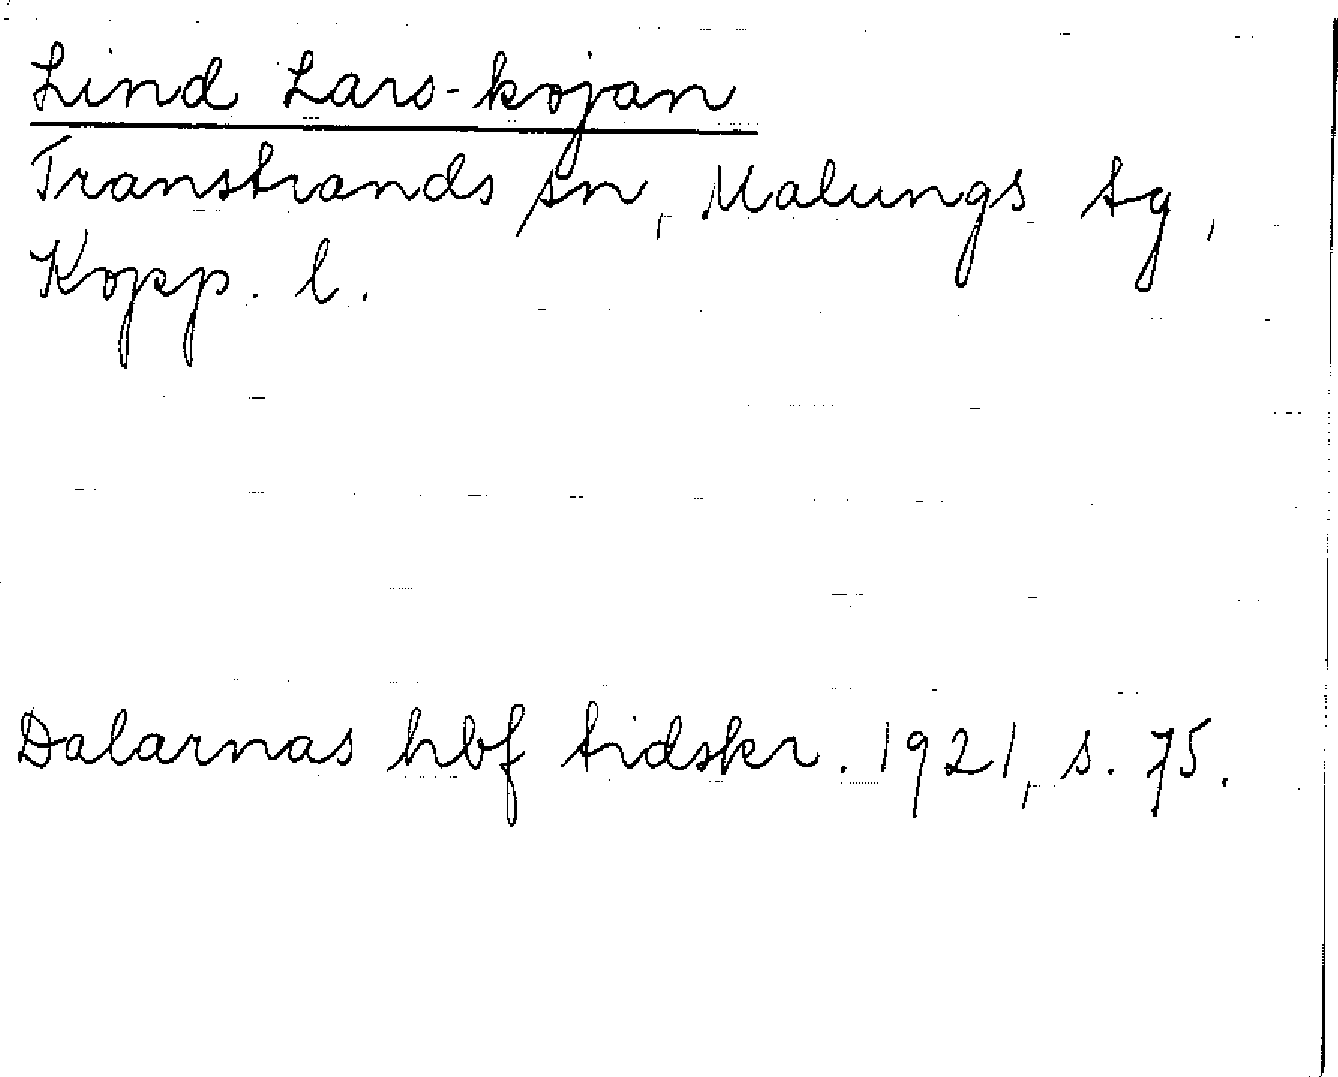 Lind Lars-kojan
Transtrands sn, Malungs tg,
Kopp. l.
Dalarnas hbf tidskr. 1921, s. 75.